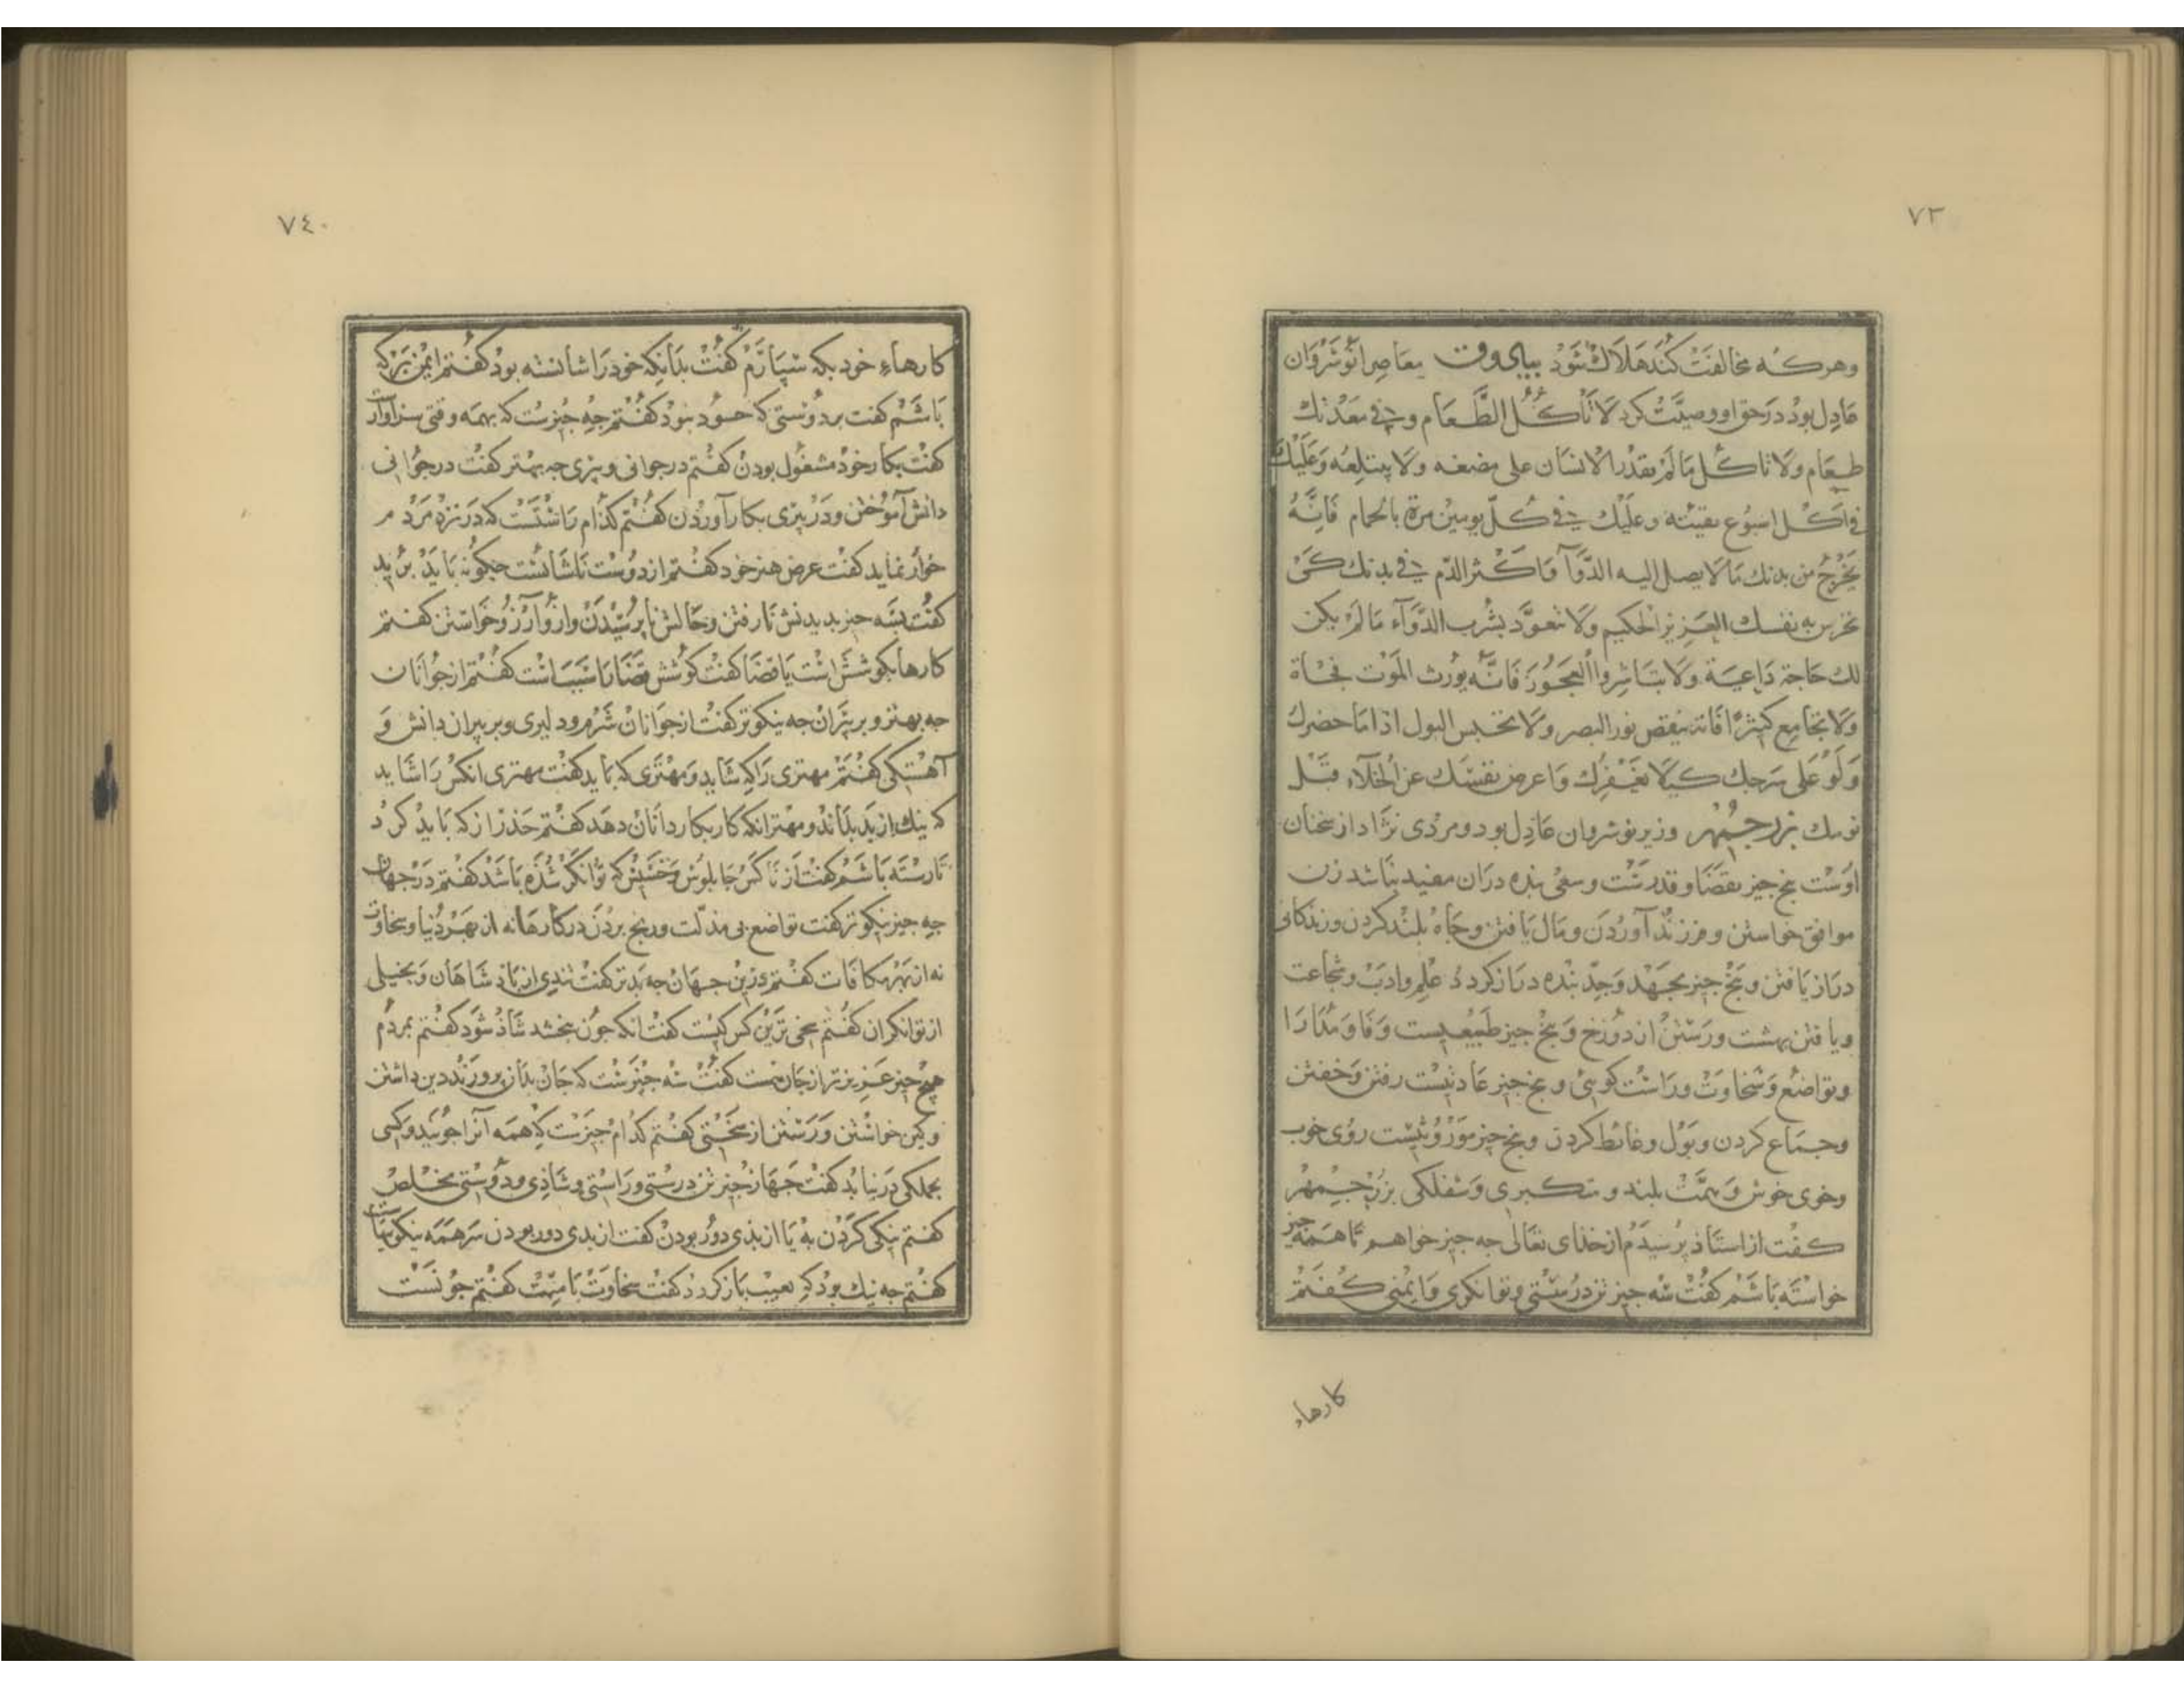 ٧٣
وهركه مخالفت كند هلاك شود بیاى وقت معاصر انوشروان
عادل بود در حق او وصیت كرد لا تأكل الطعام و فى معدتك
طعام ولا تاكل ما لم يقدر الانسان على مضغه ولا يبتلعه وعليك
فى كل اسبوع بقيئه وعليك فى كل يومين مرة بالحمام فانه
يخرج من بدنك ما لا يصل اليه الدوآ واكثر الدم فى بدنك كى
تحرس به نفسك العزيز الحكيم ولا تتعود بشرب الدوآء ما لم يكن
لك حاجة داعية ولا تباشروا العجوز فانه يورث الموت فجأة
ولا تجامع كثيرًا فانه ينقص نور البصر ولا تحبس البول اذا ما حضرك
ولو على سرجك كيلا واعرض نفسك عن الخلآء قبل
نومك بزرجمهر وزير نوشروان عادل بود و مردى نژاد از سخنان
اوست بنج جيز بقضا و قدرست وسعى بنده دران مفيد نباشد زن
موافق خواستن و فرزند آوردن و مال يافتن و جاه بلند كردن و زندكانى
دراز يافتن و بنج جيز بجهد و جد بنده دراز كردد علم وادب و شجاعت
ويافتن بهشت ورستن از دوزخ و بنج جيز طبيعيست وفا و مدارا
وتواضع وسخاوت وراست كويى و بنج جيز عادتيست رفتن وخفتن
وجماع كردن وبول وغائط كردن و بنج جيز موروثيست روى خوب
وخوى خوش و همت بلند و متكبرى وسفلكى بزرجمهر
كفت از استاذ پرسيدم از خذاى تعالى جه جيز خواهم تا همه جيز
خواسته باشم كفت سه جيز تن درستى و توانكرى وايمنى كفتم
كارهاء
٧٤
كارهاء خود بكه سپارم كفت بدانكه خود را شايسته بود كفتم ايمن بر كه
باشم كفت بر دوستى كه حسود نبود كفتم جه جيزست كه بهمه وقتى سزاوارست
كفت بكار خود مشغول بودن كفتم در جوانى و پيرى جه بهتر كفت در جوانى
دانش آموختن و در پيرى بكار آوردن كفتم كذام راستست كه در نزد مردم
خوار نمايد كفت عرض هنر خود كفتم از دوست ناشايست جكونه بايد بريد
كفت بسه جيز بديدنش نارفتن و حالش ناپرسيدن و از او آرزو خواستن كفتم
كارها بكوشش است يا قضا كفت كوشش قضا را سببست كفتم از جوانان
جه بهتر و بر پيران جه نيكوتر كفت از جوانان شرم و دليرى و بر پيران دانش و
آهستكى كفتم مهترى را كه شايد و مهترى كه بايد كفت مهترى انكس را شايد
كه نيك از بد بداند و مهتر انكه كار بكار دانان دهد كفتم حذر از كه بايد كرد
تا رسته باشم كفت از ناكس جابلوس و خسيس كه توانكر شده باشد كفتم در جهان
جه جيز نيكوتر كفت تواضع بى مذلت ورنج بردن در كارها نه از بهر دنيا وسخاوت
نه از بهر مكافات كفتم درين جهان جه بدتر كفت تندى از باذشاهان و بخيلى
از توانكران كفتم سخى ترين كس كيست كفت انكه جون بخشد شاذ شود كفتم بمردم
هيج جيز عزيزتر از جان هست كفت سه جيزست كه جان بدان پرورند دين داشتن
و كين خواستن و رستن از سختى كفتم كدام جيزست كه همه آنرا جويند و كسى
بجملكى در نيابد كفت جهار جيز تن درستى و راستى و شاذى و دوستى مخلص
كفتم نيكى كردن به يا از بذى دور بودن كفت از بدى دور بودن سر همه نيكويها است
كفتم جه نيك بود كه بعيب باز كردد كفت سخاوت با منت كفتم جونست